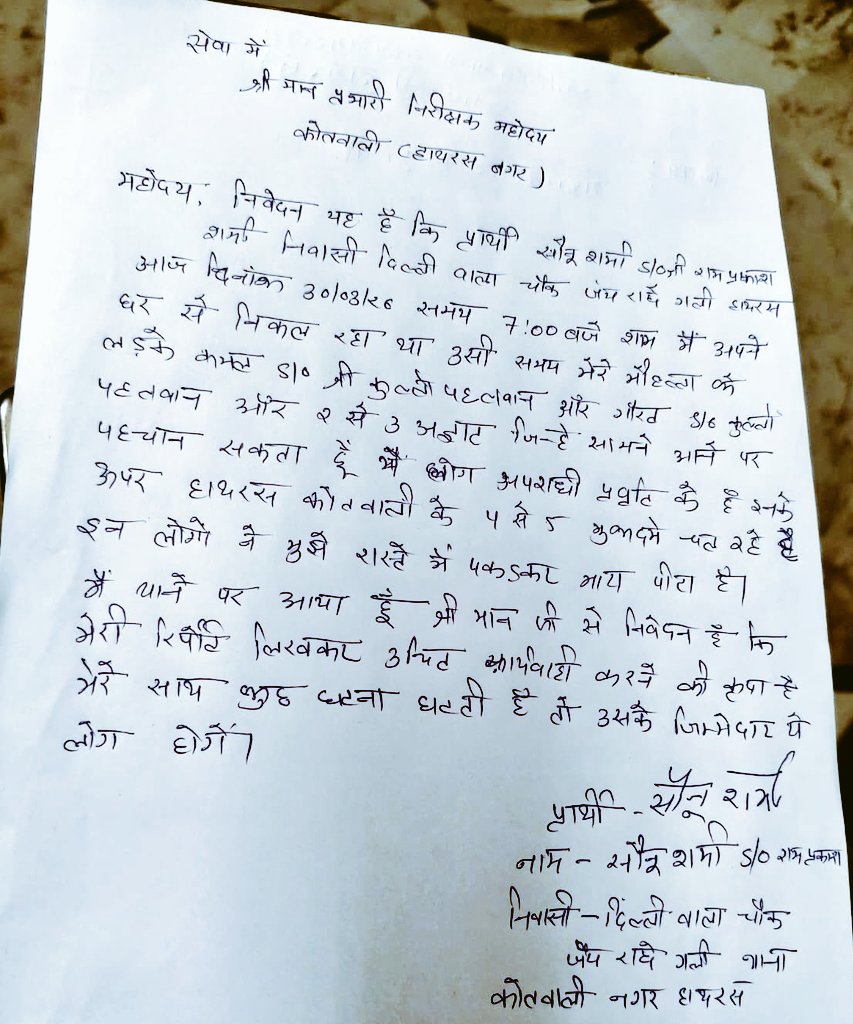 सेवा में
श्री मान प्रभारी निरीक्षक महोदय
कोतवाली (हाथरस नगर)
महोदय, निवेदन यह है कि प्रार्थी सौनू शर्मा S/O श्री राम प्रकाश
शर्मा निवासी दिल्ली वाला चौक जय राधे गली हाथरस
आज दिनांक 30/03/26 समय 7:00 बजे शाम मैं अपने
घर से निकल रहा था उसी समय मेरे मौहल्ला के
लड़के कमल S/O श्री कुल्लो पहलवान और गौरव S/O कुल्लो
पहलवान और २ से 3 अज्ञात जिन्हे सामने आने पर
पहचान सकता हूँ ये लोग अपराधी प्रर्वृति के है इनके
ऊपर हाथरस कोतवाली के ४ से ५ मुकदमे चल रहे है
इन लोगो ने मुझे रास्ते में पकडकर मारा पीटा है।
मैं थाने पर आया हूँ श्री मान जी से निवेदन है कि
मेरी रिर्पोट लिखकर उचित कार्यवाही करने की कृपा है
मेरे साथ कुछ घटना घटती है तो उसके जिम्मेदार ये
लोग होगें।
प्रार्थी - सौनू शर्मा
नाम - सौनू शर्मा S/O राम प्रकाश
निवासी - दिल्ली वाला चौक
जय राधे गली थाना
कोतवाली नगर हाथरस